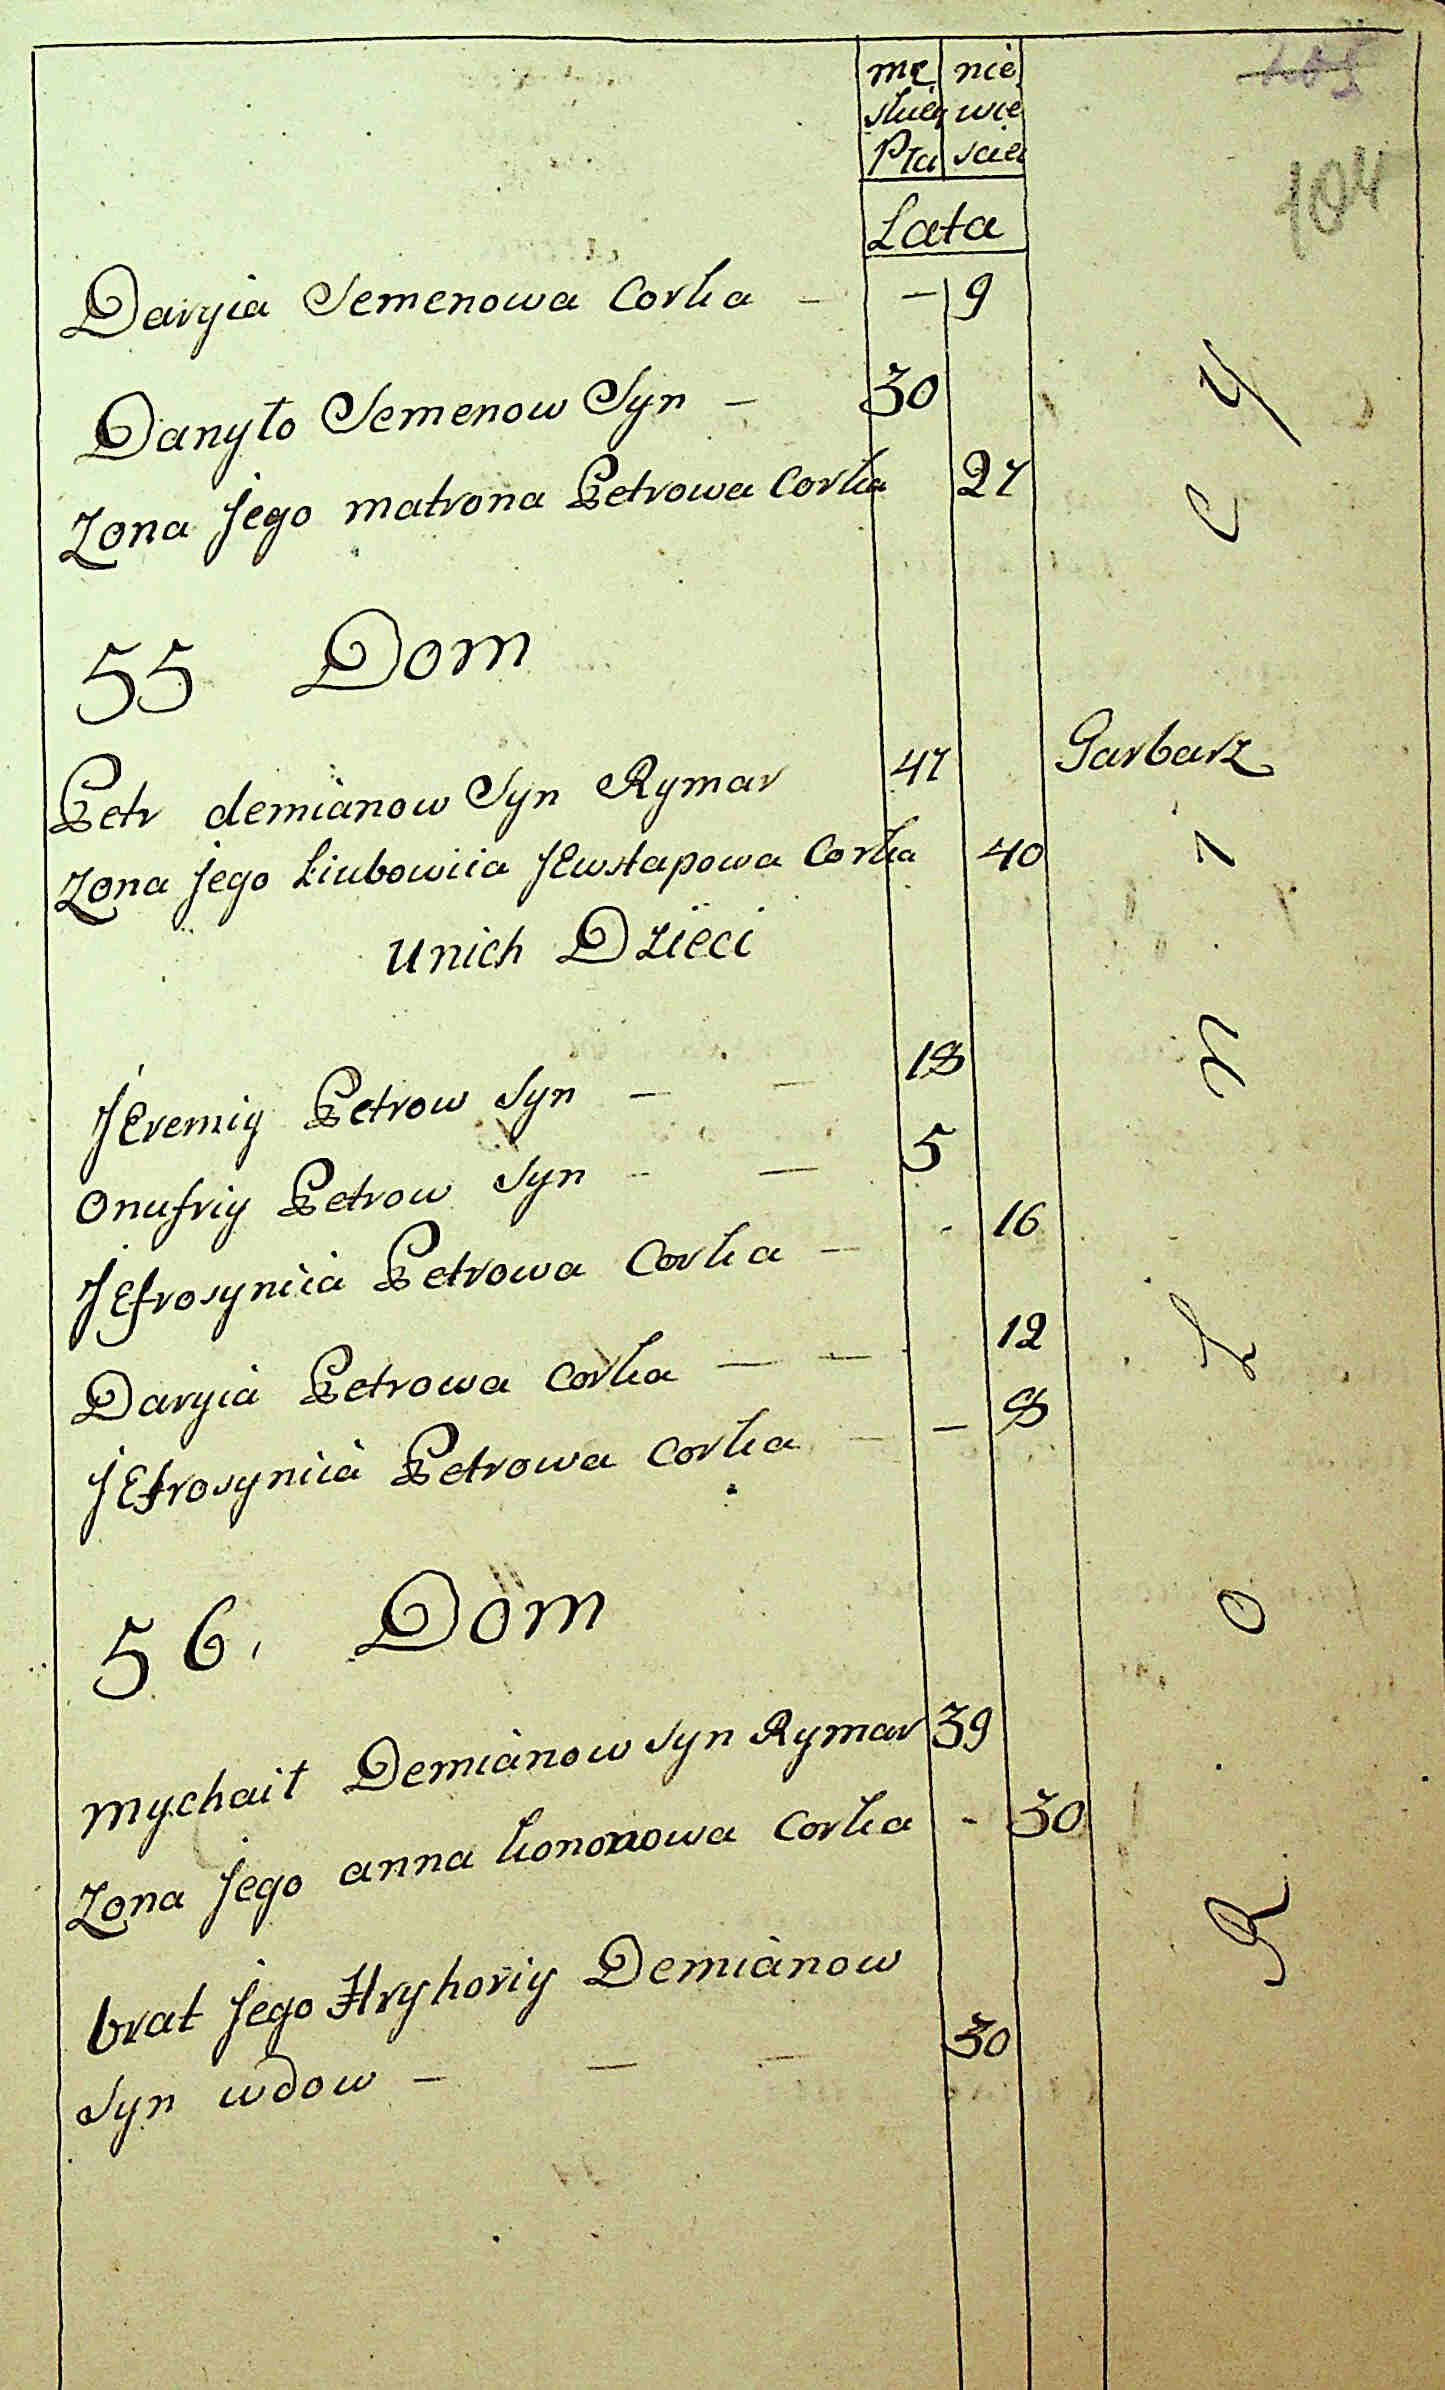 mę nie
skiey wie
Płci sciey
Lata
104
Daryia Semenowa Corka – – 9
Danyło Semenow Syn – 30
Zona jego matrona Petrowa Corka 27
55 Dom
Petr demianow Syn Rymar 47 Garbarz
Zona jego Liubowiia JEwstapowa Corka 40
unich Dzieci
JEremiy Petrow Syn – – 18
Onufriy Petrow Syn – – 5
JEfrosyniia Petrowa Corka – - 16
Daryia Petrowa Corka – – 12
JEfrosyniia Petrowa Corka – – 8
56. Dom
Mychaił Demianow Syn Rymar 39
Zona jego anna kononowa Corka - 30
brat jego Hryhoriy Demianow
Syn wdow – – – 30
Rolnicy